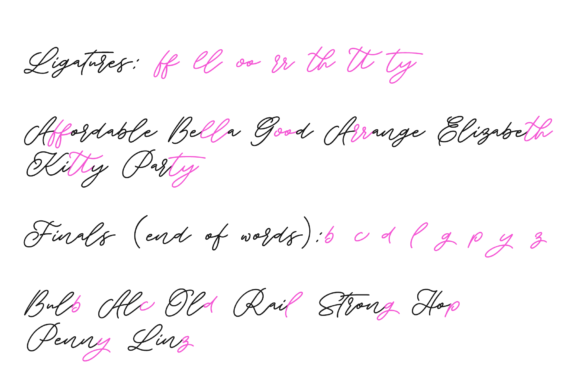 Ligatures: ff ll oo rr th tt ty
Affordable Bella Good Arrange Elizabeth
Kitty Party
Finals (end of words):b c d l g p y z
Bulb Alc Old Rail Strong Hop
Penny Linz